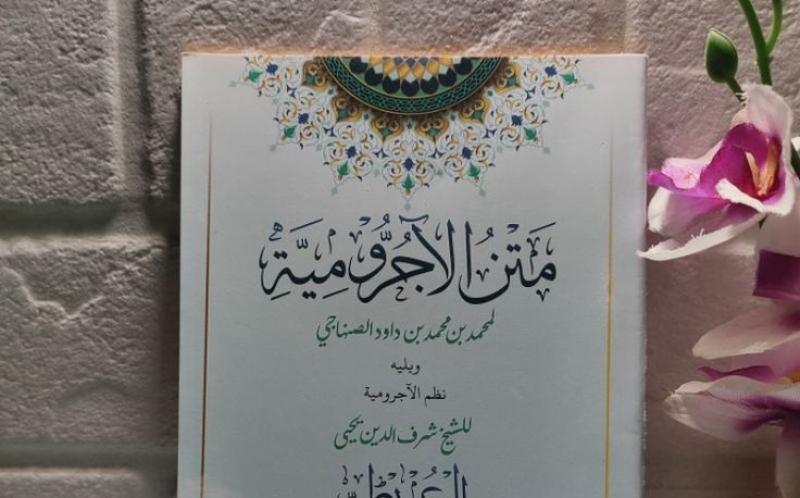 متن الآجرومية
لمحمد بن محمد بن داود الصنهاجي
ويليه
نظم الآجرومية
للشيخ شرف الدين يحيى